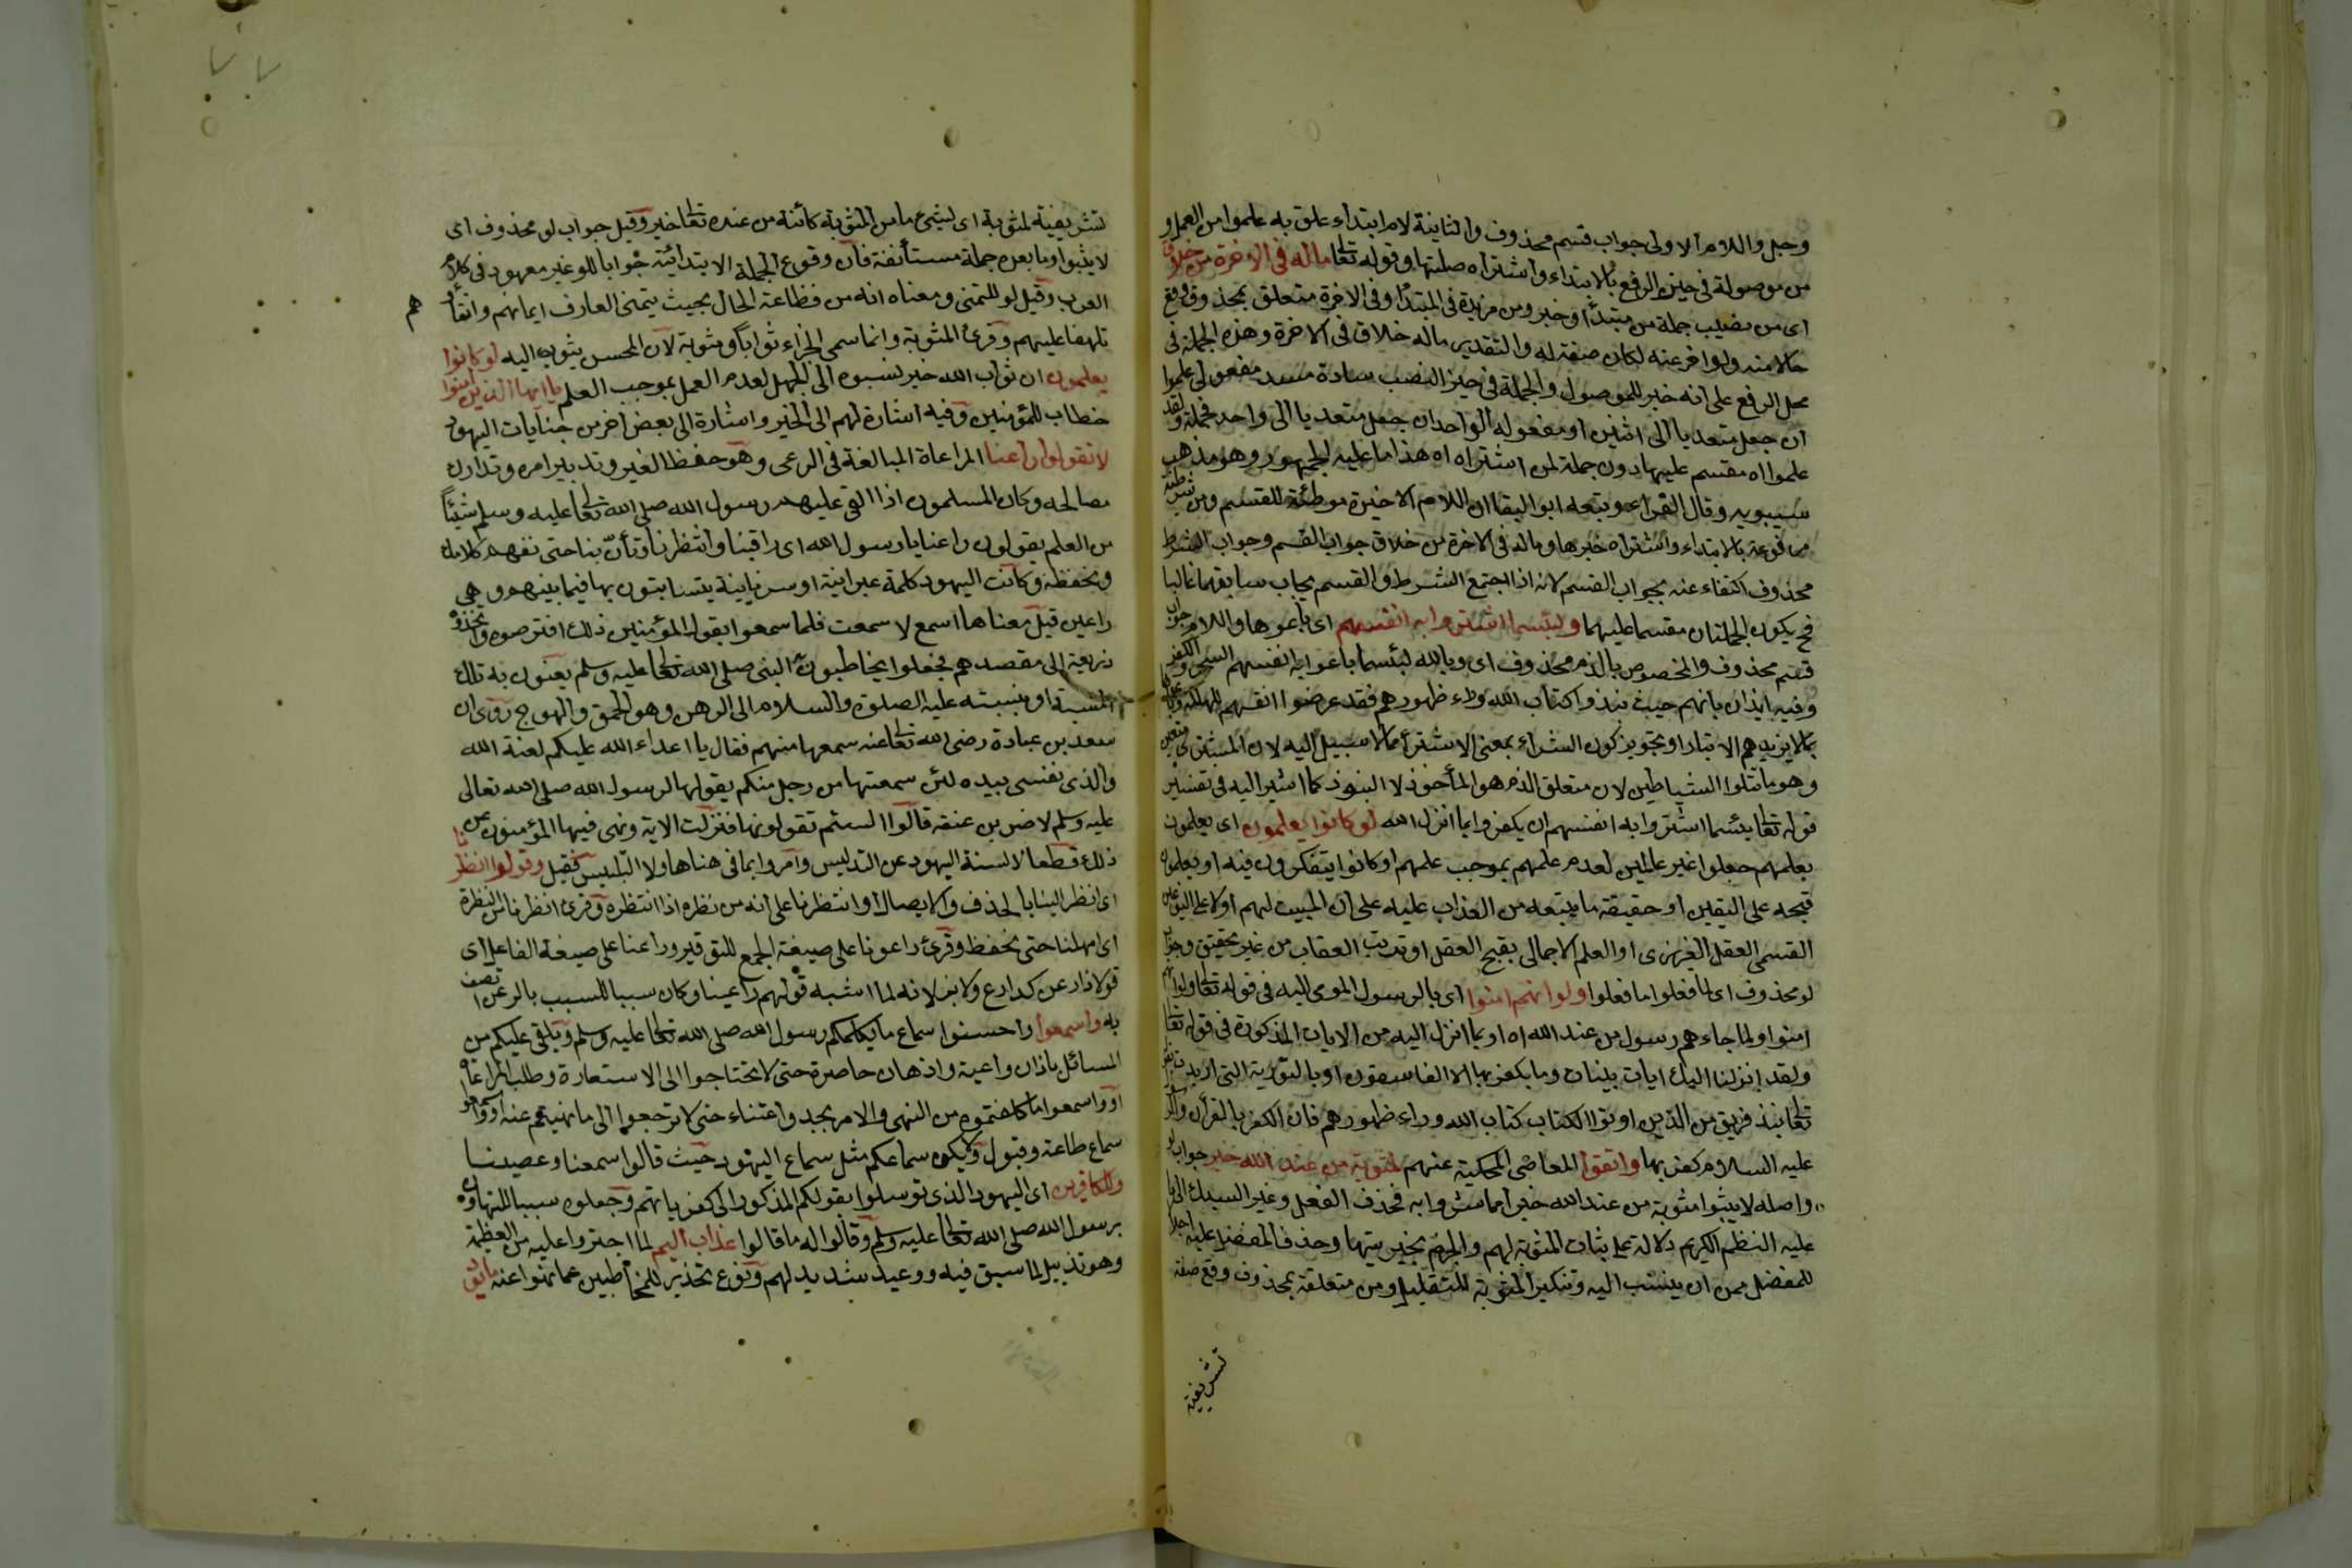 وجل واللام الاولى جواب قسم محذوف والثانية لام ابتداء علق به علموا من العمل و
من موصولة في حيز الرفع بالابتداء واشتراه صلتها وقوله تعالى ماله في الآخرة من خلاق
اى من نصيب جملة من مبتدأ وخبر ومن مزيدة في المبتدأ وفي الآخرة متعلق بمحذوف وقع
حالا منه ولو اخر عنه لكان صفة له والتقدير ماله خلاق في الآخرة وهذه الجملة في
محل الرفع على انه خبر للموصول والجملة في حيز النصب سادة مسد مفعولى علموا
ان جعل متعديا الى اثنين او مفعوله الواحد ان جعل متعديا الى واحد فجملة ولقد
علموا اه مقسم عليها دون جملة لمن اشتراه اه هذا ما عليه الجمهور وهو مذهب
سيبويه وقال الفراء وتبعه ابو البقا ان اللام الاخيرة موطئة للقسم ومن شرطية
مرفوعة بالابتداء واشتراه خبرها وماله في الآخرة من خلاق جواب القسم وجواب الشرط
محذوف اكتفاء عنه بجواب القسم لانه اذا اجتمع الشرط والقسم يجاب سابقهما غالبا
فح يكون الجملتان مقسما عليهما ولبئسما اشتروا به انفسهم اى باعوها واللام جواب
قسم محذوف والمخصوص بالذم محذوف اى وبالله لبئسما باعوا به انفسهم السحر والكفر
وفيه ايذان بانهم حيث نبذوا كتاب الله وراء ظهورهم فقد عرضوا انفسهم للهلكة
بما لا يزيدهم الا تبارا وتجويز كون الشراء بمعنى الاشتراء مما لا سبيل اليه لان المشترى متعين
وهو ما تتلوا الشياطين لان متعلق الذم هو المأخوذ لا المنبوذ كما اشير اليه في تفسير
قوله تعالى بئسما اشتروا به انفسهم ان يكفروا بما انزل الله لو كانوا يعلمون اى يعلمون
بعلمهم جعلوا غير عالمين لعدم علمهم بموجب علمهم او كانوا يتفكرون فيه او يعلمون
قبحه على اليقين او حقيقة ما يتبعه من العذاب عليه على ان المثبت لهم اولا على التوكيد
القسمى العقل الغريزى او العلم الاجمالى بقبح العقل او ترتب العقاب من غير تحقيق وجواب
لو محذوف اى لما فعلوا ما فعلوا ولو انهم امنوا اى بالرسول المومى اليه في قوله تعالى ولو انهم
امنوا ولما جاءهم رسول من عند الله اه او بما انزل اليه من الايات المذكورة في قوله تعالى
ولقد انزلنا اليك ايات بينات وما يكفر بها الا الفاسقون او بالتورية التى اريدت بقوله
تعالى نبذ فريق من الذين اوتوا الكتاب كتاب الله وراء ظهورهم فان الكفر بالقرآن والرسول
عليه السلام كفر بها واتقوا المعاصى المحكية عنهم لمثوبة من عند الله خير جواب لو
واصله لاثيبوا مثوبة من عند الله خيرا مما شروا به فحذف الفعل وغير السبك الى ما
عليه النظم الكريم دلالة على ثبات المثوبة لهم والجزم بخيريتها وحذف المفضل عليه اجلالا
للمفضل من ان ينسب اليه وتنكير المثوبة للتقليل ومن متعلقة بمحذوف وقع صفة
تشريفية
تشريفية لمثوبة اى لشىء ما من المثوبة كائنة من عنده تعالى خير وقيل جواب لو محذوف اى
لاثيبوا وما بعده جملة مستأنفة فان وقوع الجملة الابتدائية جوابا للو غير معهود في كلام
العرب وقيل لو للتمنى ومعناه انه من فظاعة الحال بحيث يتمنى العارف ايمانهم واتقاء
هم
تلهفا عليهم وقرئ المثوبة وانما سمى الجزاء ثوابا ومثوبة لان المحسن يثوب اليه لو كانوا
يعلمون ان ثواب الله خير نسبوه الى الجهل لعدم العمل بموجب العلم يا ايها الذين امنوا
خطاب للمؤمنين وفيه اشارة لهم الى الخير واشارة الى بعض اخر من جنايات اليهود
لا تقولوا راعنا المراعاة المبالغة في الرعى وهو حفظ الغير وتدبير امره وتدارك
مصالحه وكان المسلمون اذا القى عليهم رسول الله صلى الله تعالى عليه وسلم شيئاً
من العلم يقولون راعنا يا رسول الله اى راقبنا وانتظرنا وتأنّ بنا حتى نفهم كلامك
ونحفظه وكانت اليهود كلمة عبرانية او سريانية يتسابون بها فيما بينهم وهى
راعين قيل معناها اسمع لا سمعت فلما سمعوا بقول المؤمنين ذلك افترصوه واتخذوه
ذريعة الى مقصدهم فجعلوا يخاطبون به النبى صلى الله تعالى عليه وسلم يعنون به تلك
المسبة او نسبته عليه الصلوة والسلام الى الرعن وهو الحمق والهوج روى ان
سعد بن عبادة رضى الله تعالى عنه سمعها منهم فقال يا اعداء الله عليكم لعنة الله
والذى نفسى بيده لئن سمعتها من رجل منكم يقولها لرسول الله صلى الله تعالى
عليه وسلم لاضربن عنقه قالوا السنم تقولونها فنزلت الاية ونهى فيها المؤمنون عن
ذلك قطعا لالسنة اليهود عن التدليس وامروا بما في معناها ولا التلبيس فقيل وقولوا انظرنا
اى انظر الينا بالحذف والايصال او انتظرنا على انه من نظره اذا انتظره وقرئ انظرنا من النظرة
اى امهلنا حتى نحفظ وقرئ راعونا على صيغة الجمع للتوقير وراعنا على صيغة الفاعل اى
قولا ذا رعن كدارع ولابن لانه لما اشبه قولهم راعينا وكان سببا للسبب بالرعن اتصف
به واسمعوا واحسنوا سماع ما يكلمكم رسول الله صلى الله تعالى عليه وسلم ويلقى عليكم من
المسائل باذان واعية واذهان حاضرة حتى لا تحتاجوا الى الاستعارة وطلب المراعاة
او واسمعوا ما كلفتموه من النهى والامر بجد واعتناء حتى لا ترجعوا الى ما نهيتم عنه او واسمعوا
سماع طاعة وقبول ولا يكن سماعكم مثل سماع اليهود حيث قالوا سمعنا وعصينا
وللكافرين اى اليهود الذى توسلوا بقولكم المذكور الى كفرياتهم وجعلوه سببا للتهاون
برسول الله صلى الله تعالى عليه وسلم وقالوا له ما قالوا عذاب اليم لما اجتروا عليه من العظيمة
وهو تذييل لما سبق فيه ووعيد شديد لهم ونوع تحذير للمخاطبين عما نهوا عنه ما يود